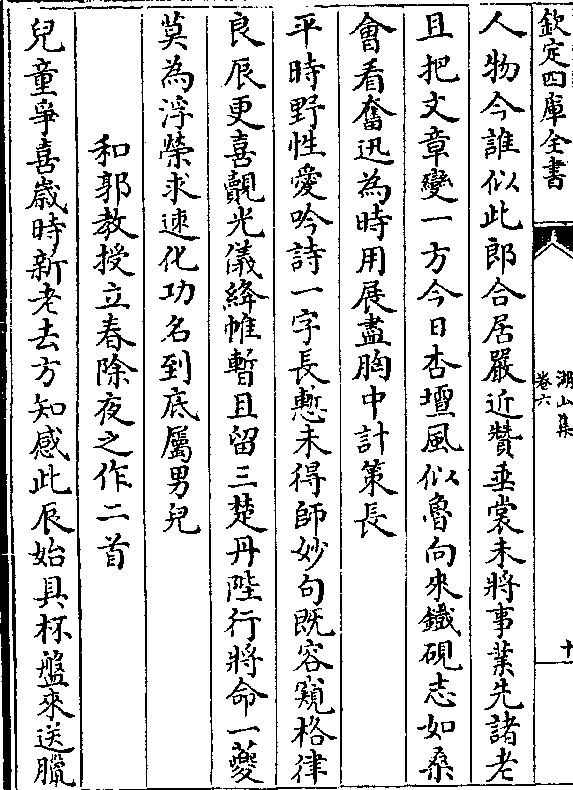 欽定四庫全書
湖山集
卷六
十
人物今誰似此郎合居嚴近贊垂裳未將事業先諸老
且把文章變一方今日杏壇風似魯向來鐵硯志如桑
會看奮迅為時用展盡胸中計策長
平時野性愛吟詩一字長慙未得師妙句既容窺格律
良辰更喜覿光儀絳帷暫且留三楚丹陛行將命一夔
莫為浮榮求速化功名到底屬男兒
和郭教授立春除夜之作二首
兒童爭喜歲時新老去方知感此辰始具杯盤來送臘